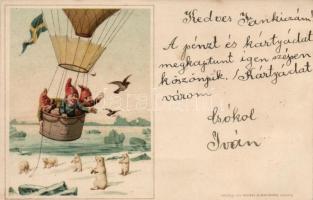 Kedves Jankiczám!
A pénzt és kártyádat
megkaptunt igen szépen
köszönjük. Kártyádat
várom
Csókol
Iván